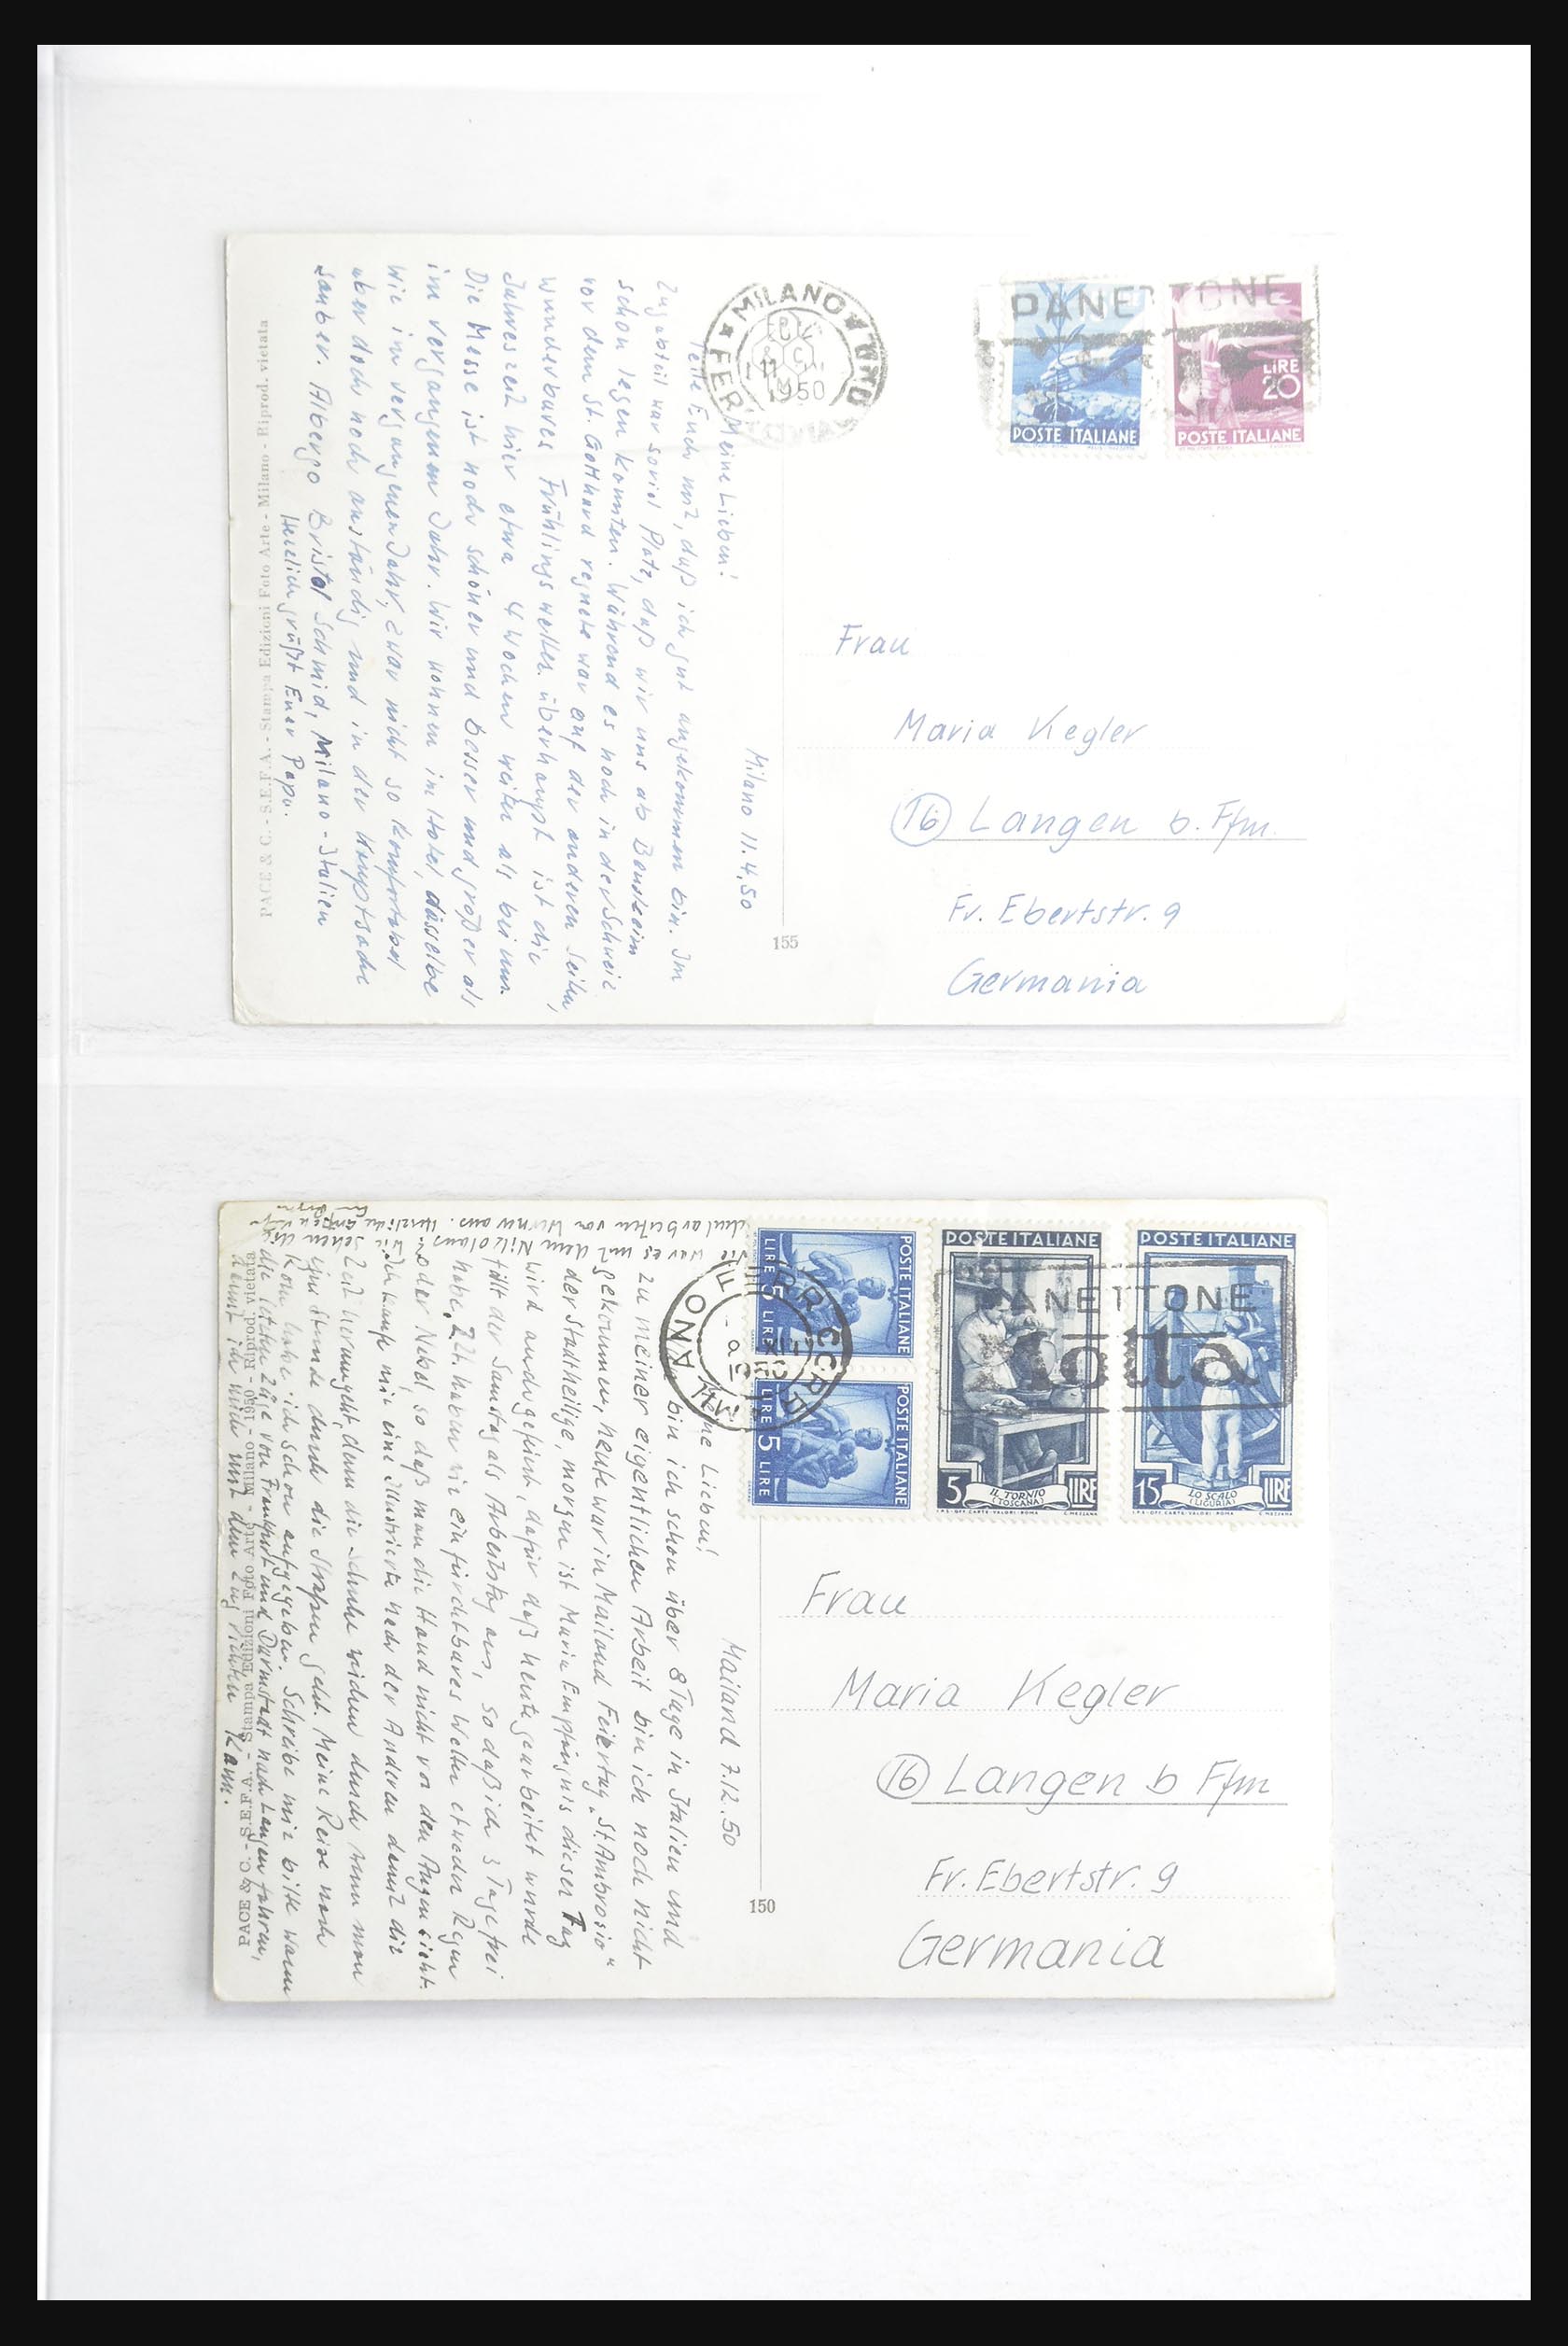 MILANO
FERROVIA
11 IV
1950
PANETTONE
POSTE ITALIANE
LIRE
20
POSTE ITALIANE
Milano 11.4.50
Meine Lieben!
Teile Euch mit, daß ich gut angekommen bin. Im
Zugabteil war soviel Platz, daß wir uns ab Bensheim
schon legen konnten. Während es noch in der Schweiz
vor dem St. Gotthard regnete war auf der anderen Seite,
wunderbares Frühlingswetter überhaupt ist die
Jahreszeit hier etwa 4 Wochen weiter als bei uns.
Die Messe ist noch schöner und besser und größer als
im vergangenen Jahr. Wir wohnen im Hotel, dasselbe
wie im vergangenen Jahr, zwar nicht so komfortabel
aber doch noch anständig und in der Hauptsache
sauber. Albergo Bristol Schmid, Milano - Italien
Herzlich grüßt Euer Papa.
PACE & C. - S.E.F.A. - Stampa Edizioni Foto Arte - Milano - Riprod. vietata
155
Frau
Maria Kegler
16 Langen b. Ffm.
Fr. Ebertstr. 9
Germania
POSTE ITALIANE
LIRE 5 LIRE
POSTE ITALIANE
LIRE 5 LIRE
POSTE ITALIANE
5 IL TORNIO LIRE
(TOSCANA)
I.P.S.-OFF.CARTE-VALORI-ROMA C.MEZZANA
POSTE ITALIANE
15 LO SCALO LIRE
(LIGURIA)
I.P.S.-OFF.CARTE-VALORI-ROMA C.MEZZANA
PANETTONE
Motta
MILANO FERROVIA
1950
Mailand 7.12.50
Meine Lieben!
Nun bin ich schon über 8 Tage in Italien und
zu meiner eigentlichen Arbeit bin ich noch nicht
gekommen, heute war in Mailand Feiertag „St. Ambrosio"
der Stadtheilige, morgen ist Maria Empfängnis dieser Tag
wird auch gefeiert, dafür daß heute gearbeitet wurde
fällt der Samstag als Arbeitstag aus, so daß ich 3 Tage frei
habe. Z.Zt. haben wir ein furchtbares Wetter etweder Regen
oder Nebel, so daß man die Hand nicht vor den Augen sieht.
Ich kaufe mir eine Illustrierte nach der Anderen damit die
Zeit herumgeht, denn die Schuhe weichen durch wenn man
eine Stunde durch die Straßen geht. Meine Reise nach
Rom habe ich schon aufgegeben. Schreibe mir bitte wann
die letzten Züge von Frankfurt und Darmstadt nach Langen fahren,
damit ich mich mit dem Zug richten kann.
Wie war es mit dem Nikolaus?
Schularbeiten von Werner aus. Herzliche
PACE & C. - S.E.F.A. - Stampa Edizioni Foto Arte - Milano - 1950 - Riprod. vietata
150
Frau
Maria Kegler
16 Langen b Ffm
Fr. Ebertstr. 9
Germania